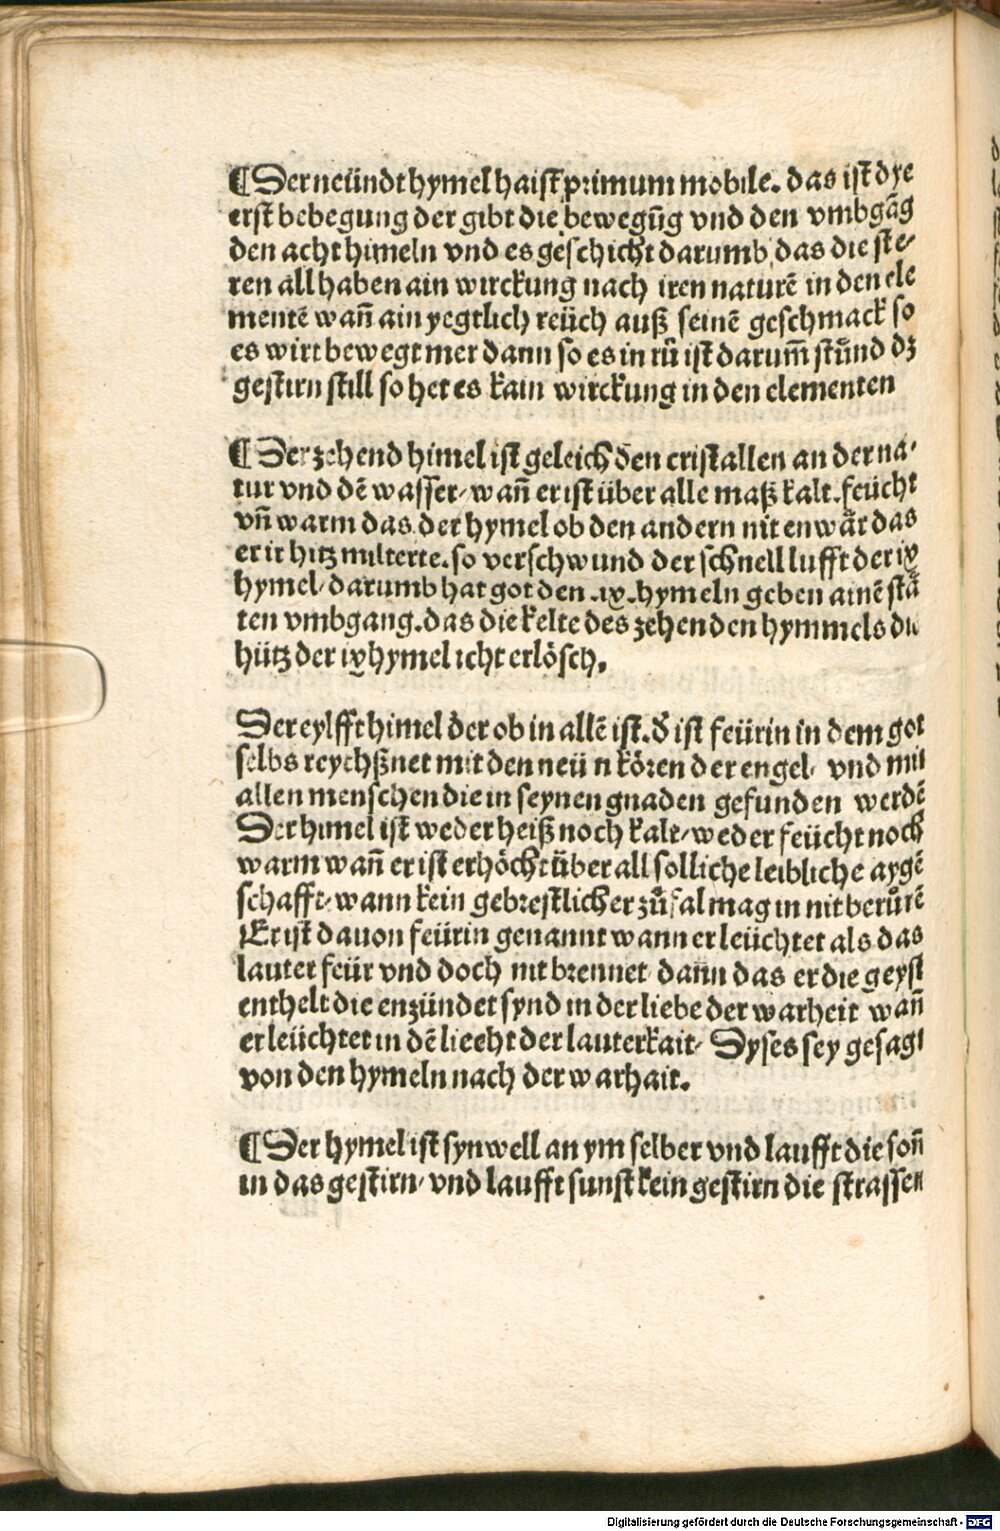 ¶ Der neündt hymel haist primum mobile. das ist dye
erst bebegung der gibt die bewegūg vnd den vmbgāg
den acht himeln vnd es geschicht darumb das die ste-
ren all haben ain wirckung nach iren naturē in den ele
mentē wañ ain yegtlich reüch auß seinē geschmack so
es wirt bewegt mer dann so es in rů ist darum̄ stůnd dz
gestirn still so het es kain wirckung in den elementen
¶ Der zehend himel ist geleich den cristallen an der na-
tur vnd dē wasser/ wañ er ist über alle maß kalt. feücht
vñ warm das der hymel ob den andern nit enwår das
er ir hitz milterte. so verschwund der schnell lufft der ix
hymel/ darumb hat got den .ix. hymeln geben ainē stå
ten vmbgang. das die kelte des zehenden hymmels die
hütz der ix hymel icht erlösch.
Der eylfft himel der ob in allē ist. đ ist feürin in dem got
selbs reychßnet mit den neün kören der engel/ vnd mit
allen menschen die in seynen gnaden gefunden werdē
Der himel ist weder heiß noch kalt/ weder feücht noch
warm wañ er ist erhöcht über all solliche leibliche aygē
schafft/ wann kein gebrestlicher zůfal mag in nit berůrē
Er ist dauon feürin genannt wann er leüchtet als das
lauter feür vnd doch nit brennet dann das er die geyst
enthelt die enzündet synd in der liebe der warheit wañ
er leüchtet in dē liecht der lauterkait/ Dyses sey gesagt
von den hymeln nach der warhait.
¶ Der hymel ist synwell an ym selber vnd laufft die soñ
in das gestirn/ vnd laufft sunst kein gestirn die strassen
Digitalisierung gefördert durch die Deutsche Forschungsgemeinschaft - DFG